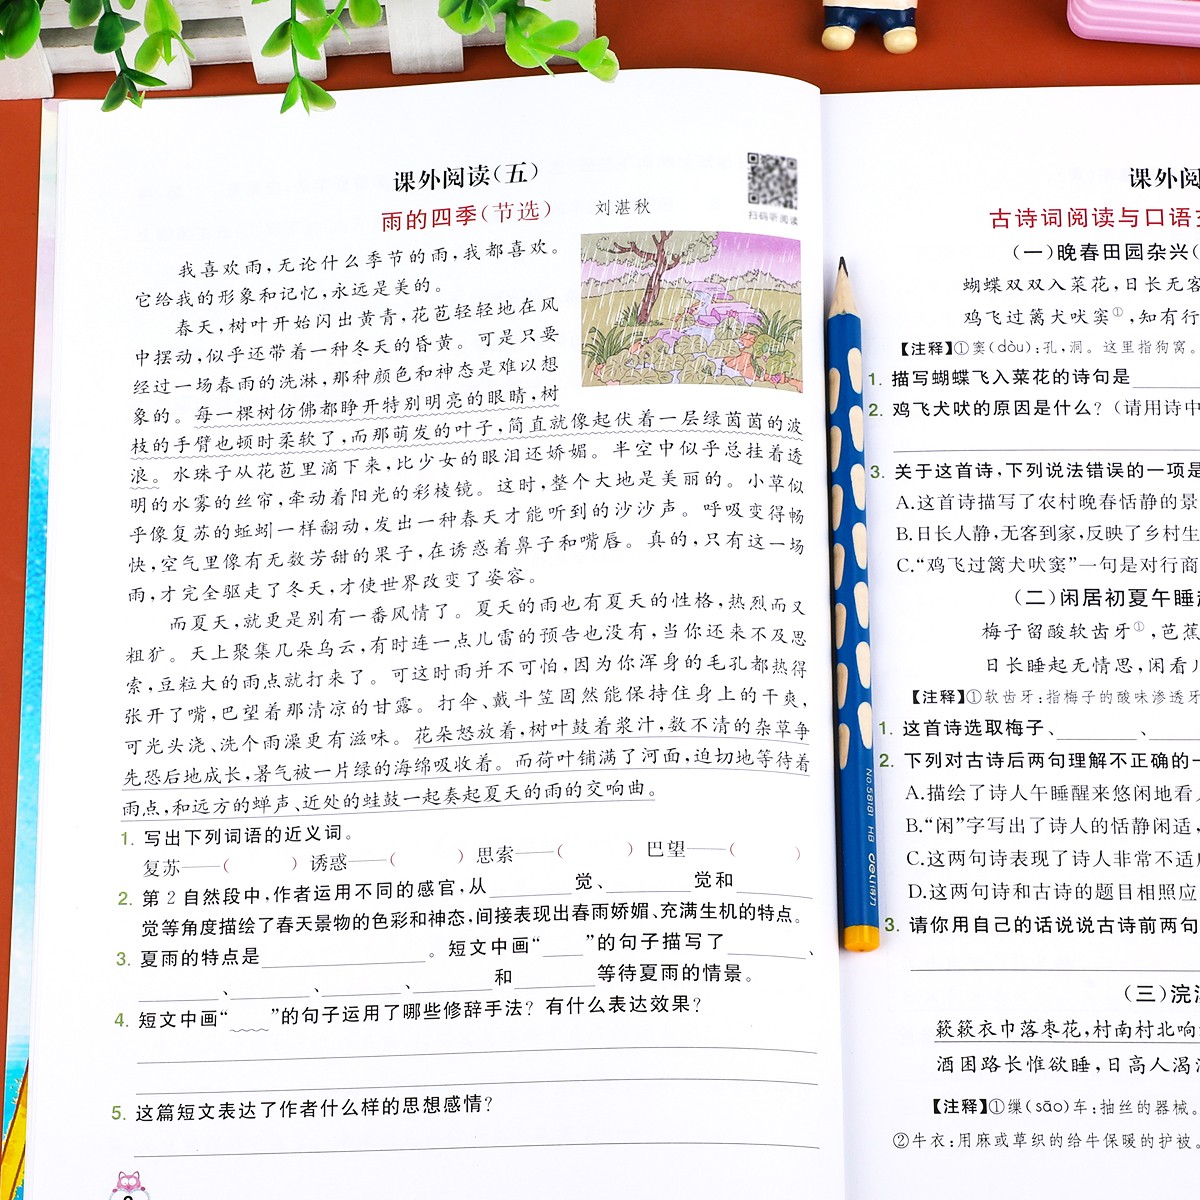 课外阅读(五)
雨的四季(节选)
刘湛秋
扫码听阅读
我喜欢雨,无论什么季节的雨,我都喜欢。
它给我的形象和记忆,永远是美的。
春天,树叶开始闪出黄青,花苞轻轻地在风
中摆动,似乎还带着一种冬天的昏黄。可是只要
经过一场春雨的洗淋,那种颜色和神态是难以想
象的。每一棵树仿佛都睁开特别明亮的眼睛,树
枝的手臂也顿时柔软了,而那萌发的叶子,简直就像起伏着一层绿茵茵的波
浪。水珠子从花苞里滴下来,比少女的眼泪还娇媚。半空中似乎总挂着透
明的水雾的丝帘,牵动着阳光的彩棱镜。这时,整个大地是美丽的。小草似
乎像复苏的蚯蚓一样翻动,发出一种春天才能听到的沙沙声。呼吸变得畅
快,空气里像有无数芳甜的果子,在诱惑着鼻子和嘴唇。真的,只有这一场
雨,才完全驱走了冬天,才使世界改变了姿容。
而夏天,就更是别有一番风情了。夏天的雨也有夏天的性格,热烈而又
粗犷。天上聚集几朵乌云,有时连一点儿雷的预告也没有,当你还来不及思
索,豆粒大的雨点就打来了。可这时雨并不可怕,因为你浑身的毛孔都热得
张开了嘴,巴望着那清凉的甘露。打伞、戴斗笠固然能保持住身上的干爽,
可光头浇、洗个雨澡更有滋味。花朵怒放着,树叶鼓着浆汁,数不清的杂草争
先恐后地成长,暑气被一片绿的海绵吸收着。而荷叶铺满了河面,迫切地等待着
雨点,和远方的蝉声、近处的蛙鼓一起奏起夏天的雨的交响曲。
1. 写出下列词语的近义词。
复苏——( ) 诱惑——( ) 思索——( ) 巴望——( )
2. 第2自然段中,作者运用不同的感官,从____觉、____觉和____
觉等角度描绘了春天景物的色彩和神态,间接表现出春雨娇媚、充满生机的特点。
3. 夏雨的特点是________。短文中画“____”的句子描写了____、
____、____、____、____和____等待夏雨的情景。
4. 短文中画“____”的句子运用了哪些修辞手法?有什么表达效果?
5. 这篇短文表达了作者什么样的思想感情?
课外阅
古诗词阅读与口语
(一)晚春田园杂兴(
蝴蝶双双入菜花,日长无客
鸡飞过篱犬吠窦①,知有行
【注释】①窦(dòu):孔,洞。这里指狗窝。
1. 描写蝴蝶飞入菜花的诗句是____
2. 鸡飞犬吠的原因是什么?(请用诗中
3. 关于这首诗,下列说法错误的一项是
A.这首诗描写了农村晚春恬静的景
B.日长人静,无客到家,反映了乡村生
C.“鸡飞过篱犬吠窦”一句是对行商
(二)闲居初夏午睡
梅子留酸软齿牙①,芭蕉
日长睡起无情思,闲看儿
【注释】①软齿牙:指梅子的酸味渗透牙
1. 这首诗选取梅子、____、____
2. 下列对古诗后两句理解不正确的一
A.描绘了诗人午睡醒来悠闲地看
B.“闲”字写出了诗人的恬静闲适,
C.这两句诗表现了诗人非常不适
D.这两句诗和古诗的题目相照应
3. 请你用自己的话说说古诗前两句
(三)浣
簌簌衣巾落枣花,村南村北响
酒困路长惟欲睡,日高人渴
【注释】①缫(sāo)车:抽丝的器械。
②牛衣:用麻或草织的给牛保暖的护被。
No.58181 HB deli得力